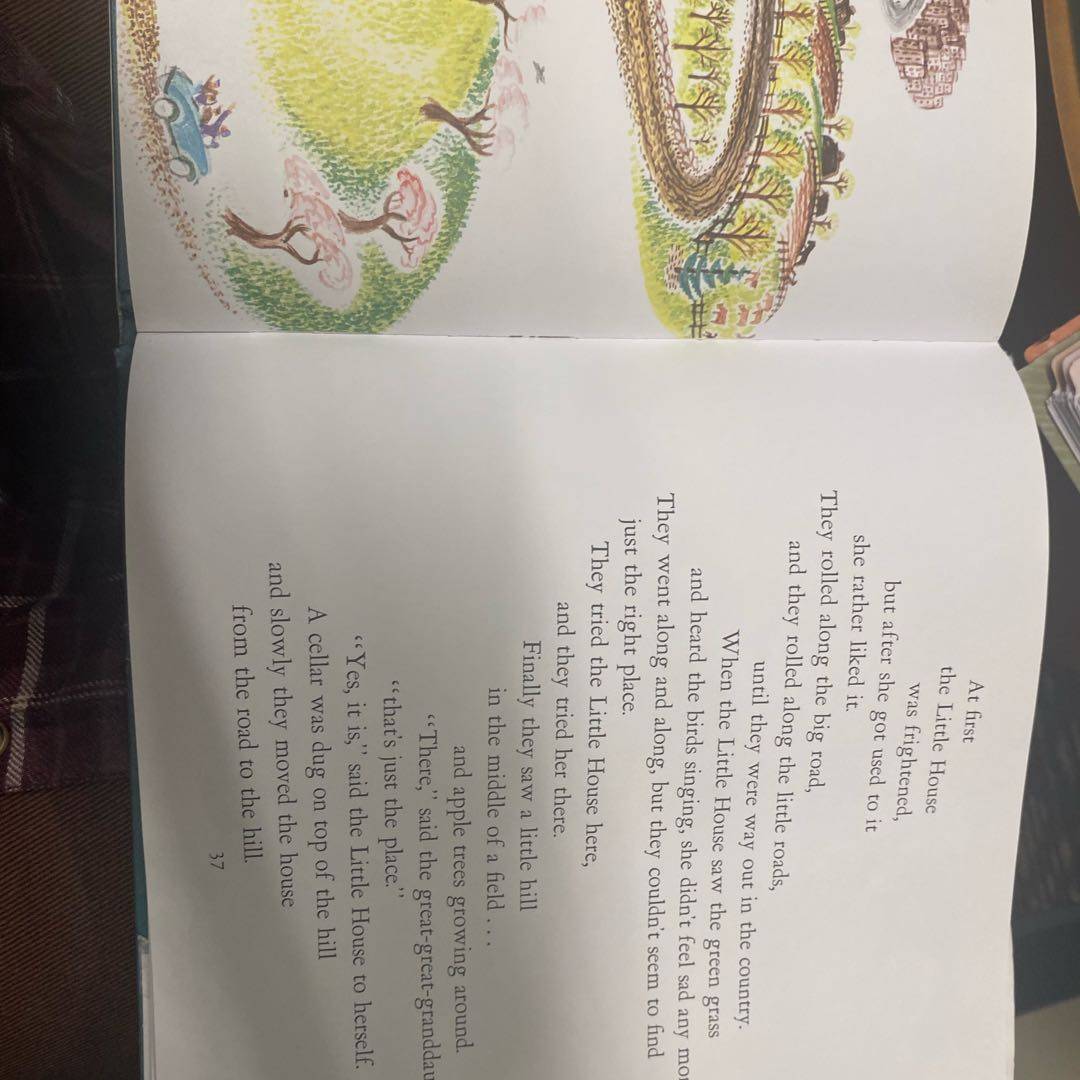 At first
the Little House
was frightened,
but after she got used to it
she rather liked it.
They rolled along the big road,
and they rolled along the little roads,
until they were way out in the country.
When the Little House saw the green grass
and heard the birds singing, she didn't feel sad any mo
They went along and along, but they couldn't seem to find
just the right place.
They tried the Little House here,
and they tried her there.
Finally they saw a little hill
in the middle of a field . . .
and apple trees growing around.
“There,” said the great-great-granddau
“that's just the place.”
“Yes, it is,” said the Little House to herself.
A cellar was dug on top of the hill
and slowly they moved the house
from the road to the hill.
37